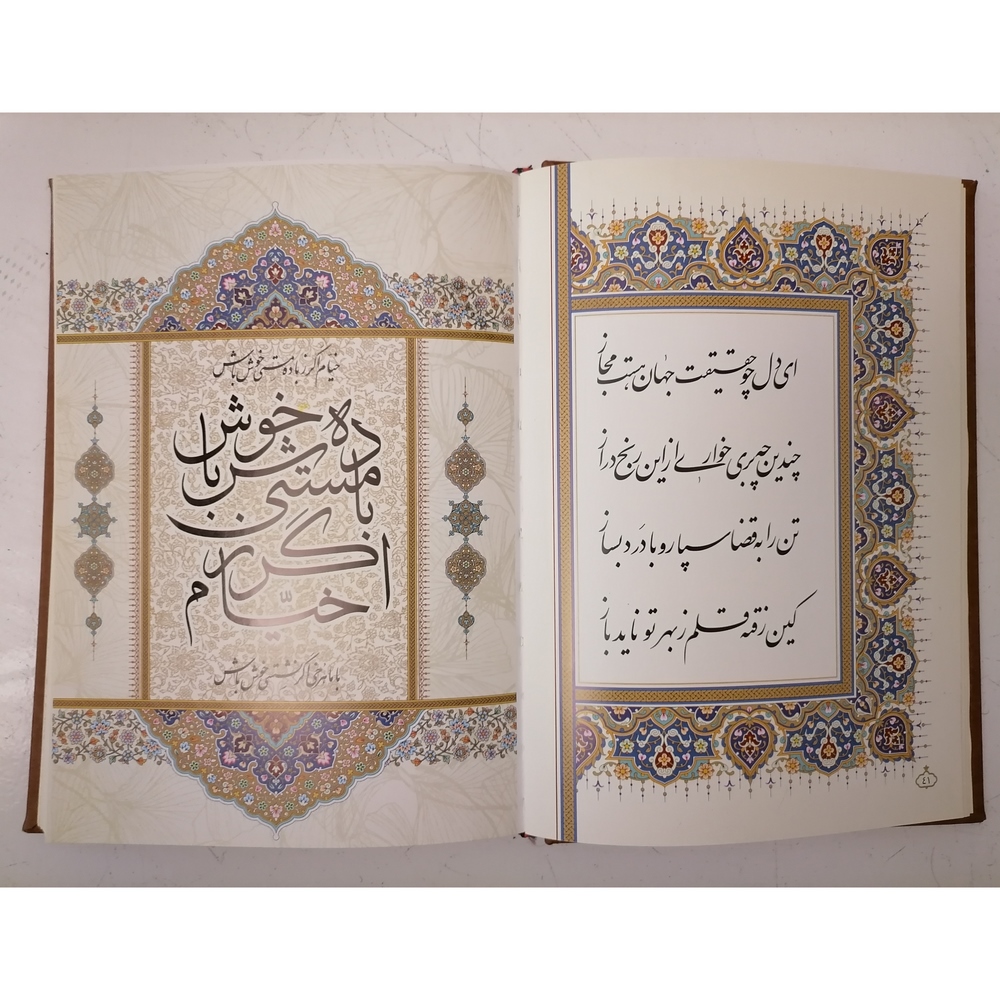 ای دل چو حقیقت جهان هست مجاز
چندین چه بری خواری از این رنج دراز
تن را به قضا سپار و با دَرد بساز
کین رفته قلم ز بهر تو ناید باز
٤١
خیام اگر ز باده مستی خوش باش
خیّام اگر ز باده مستی خوش باش
با ماهرخی اگر نشستی خوش باش